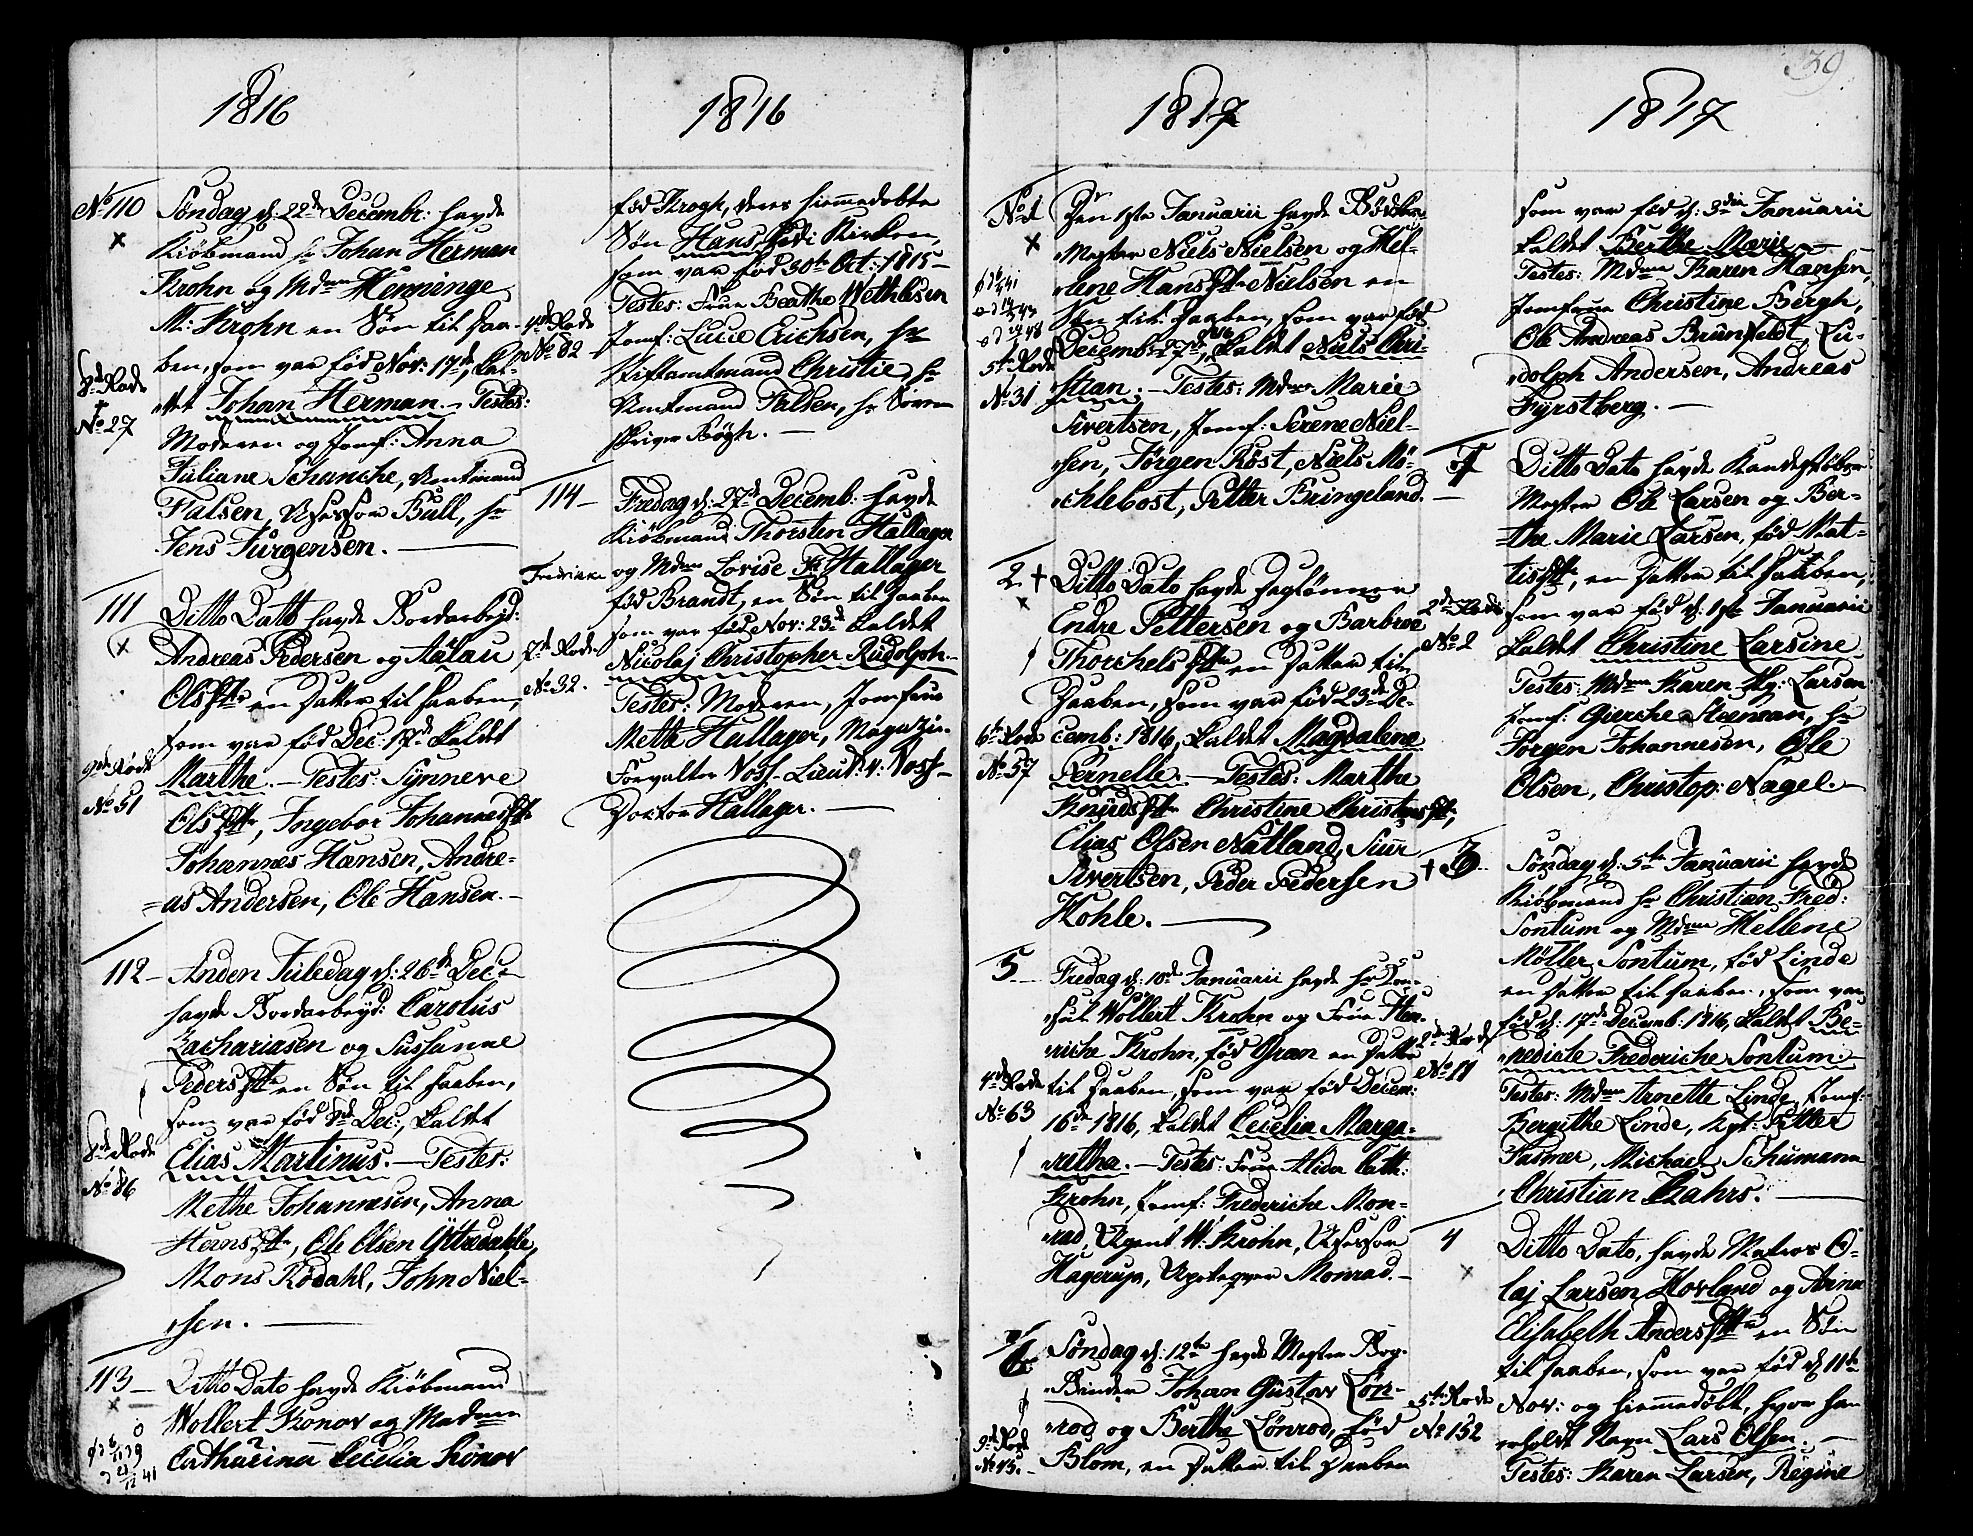 39
1816
No 110
Søndag d: 22de Decembr: havde
Kiøbmand Hr Johan Herman
Krohn og Mdme Henninge
M: Krohn en Søn til Daa-
ben, som var fød Nov: 17de, kal-
det Johan Herman. – Testes:
Moderen og Jomf: Anna
Juliane Schanche, Amtmand
Falsen, Assessor Bull, Hr
Jens Jürgensen. —
8de Rode
No 27
111
Ditto Dato havde Bordarbeyd:
Andreas Pedersen og Aalau
Olsdtr en Datter til Daaben,
som var fød Dec: 17de kaldet
Marthe. – Testes: Synneve
Olsdtr, Ingebor Johannesdtr
Johannes Hansen, Andre-
as Andersen, Ole Hansen. –
9de Rode
No 51
112 –
Anden Juledag d: 26de Dec:
havde Bordarbeyd: Carolus
Zachariasen og Sussanne
Pedersdtr en Søn til Daaben,
som var fød 8de Dec:, kaldet
Elias Martinus. – Testes:
Methe Johannesen, Anna
dtr, Ole Olsen Yttredahle,
Mons Rødahl, John Niel-
sen. —
8de Rode
No 86
113 –
Ditto Dato havde Kiøbmand
Wollert Konow og Madme
Catharina Cecelia Konow
1816
fød Krogh, deres hiemmedøbte
Søn Hans, i Kirken,
som var fød 30te Oct: 1815 –
Testes: Frue Beathe Wethlesen
Jomf: Lucie Erichsen, Hr
Stiftamtmand Christie, Hr
Amtmand Falsen, Hr Soren
skriver Bøgh. –
4de Rode
No 82
114 –
Fredag d: 27de Decemb: havde
Kiøbmand Thorsten Hallager
og Mdme Lovise Fr Hallager
fød Brandt, en Søn til Daaben
som var fød Nov: 23de kaldet
Nicolaj Christopher Rudolph. –
Testes: Moderen, Jomfrue
Mette Hallager, Magazin-
Forvalter Voss – Lieut: v: Voss –
Doctor Hallager. —
Fredrikke
7de Rode
No 32.
1817
No 1
Den 1ste Januarii havde Bødker
Mester Niels Nielsen og Hel-
lene Hansdtr Nielsen en
Søn til Daaben, som var fød
Decemb: 27de 1816, kaldet Niels Chri-
stian. – Testes: Mdme Marie
Sivertsen, Jomf: Serene Niel-
sen, Jørgen Røst, Niels Mö-
chlebost, Petter Bringeland. —
5te Rode
No 31
2 +
Ditto Dato havde Daglønner
Endre Pettersen og Barbroe
Thorchelsdtr en Datter til
Daaben, som var fød 23de De-
cemb: 1816, kaldet Magdalene
Pernelle. – Testes: Marthe
Knudsdtr Christine Christensdtr,
Elias Olsen Natland, Siur
Sivertsen, Peder Pedersen
Kohle. —
6te Rode
No 57
5 –
Fredag d: 10de Januarii havde Hr Con-
sul Wollert Krohn og Frue Hen-
riche Krohn, fød Gran en Datter
til Daaben, som var fød Decem:
16de 1816, kaldet Cecelia Marga-
retha. – Testes: Frue Alida Cath:
Krohn, Jomf: Frederiche Mon-
rad, Agent W: Krohn, Assessor
Hagerup, Apoteqver Monrad. –
4de Rode
No 63
6
Søndag d: 12te havde Mester Bog-
Binder Johan Gustav Lön-
rod og Berthe Lönrod, fød
Blom, en Datter til Daaben
9de Rode
No 13. –
1817
som var fød d: 3die Januarii
kaldet Berthe Marie –
Testes: Mdme Karen Hansen,
Jomfrue Christine Bergh,
Ole Andreas Brunfeldt, Lu-
dolph Andersen, Andreas
Fyrstberg. —
Ditto Dato havde Kandestøber
Mester Ole Larsen og Ber-
the Marie Larsen, fød Mat-
tisdtr, en Datter til Daaben,
som var fød d: 1ste Januarii
kaldet Christine Larsine
Testes: Mdme Karen Larsen
Jomf: Gierche Steensan, Hr
Jørgen Johannesen, Ole
Olsen, Christop: Nagel. –
2de Rode
No 2
+ 3
Søndag d: 5te Januarii havde
Kiøbmand Hr Christian Fred:
Sontum og Mdme Hellene
Møller Sontum, fød Linde
en Datter til Daaben, som var
fød d: 17de Decemb: 1816, kaldet Be-
nedicte Frederiche Sontum
Testes: Mdme Arnette Linde, Jomf:
Bergithe Linde, Kpt: Petter
Fasmer, Michael Schumann
Christian Rahrs. —
2de Rode
No 11
4
Ditto Dato, havde Matros O-
laj Larsen Hovland og Anna
Elisabeth Andersdtr en Søn
til Daaben, som var fød d 11te
Nov: og hiemmedøbt, hvor han
erholdt Navn Lars Olsen. –
Testes: Karen Larsen, Regine
5te Rode
No 152